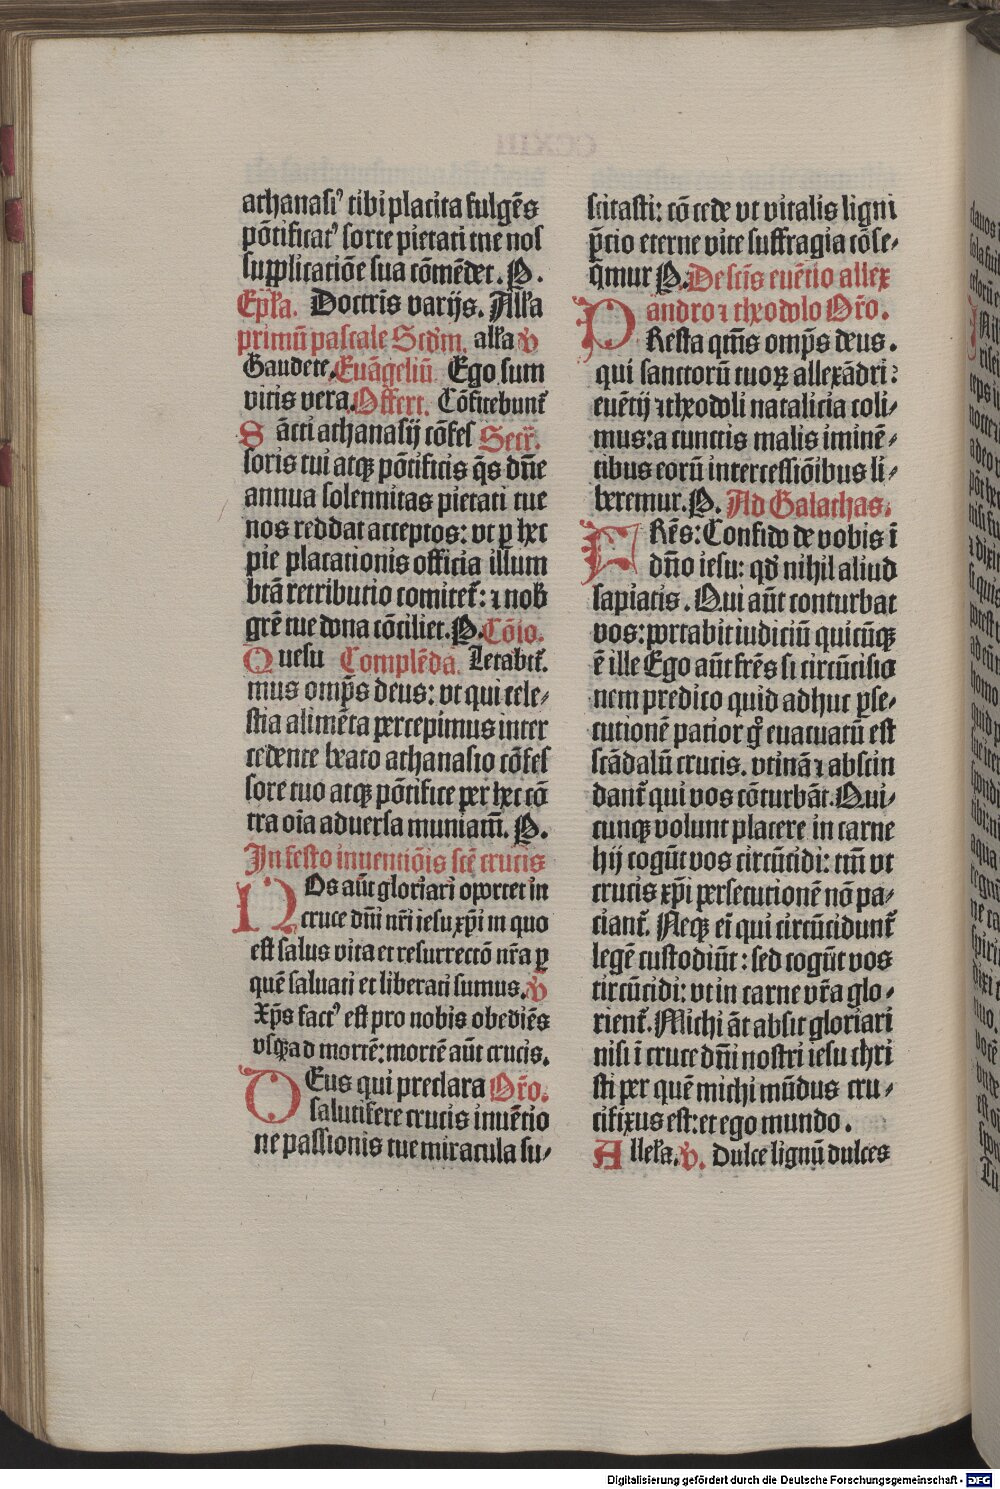 athanasiꝰ tibi placita fulgēs
pōtificatꝰ sorte pietati tue nos
supplicatiōe sua cōmēdet. P.
Epl̄a. Doctris varijs. All̄a
primū pascale Scd̄m. all̄a v̄
Gaudete. Euāgeliū. Ego sum
vitis vera. Offert. Cōfitebunt᷑
Sācti athanasij cōfes Secr̄.
soris tui atqꝫ pōtificis q̄s dn̄e
annua solennitas pietati tue
nos reddat acceptos: vt ꝑ hec
pie placationis officia illum
btā retributio comitet᷑: ⁊ nob̄
grē tue dona cōciliet. P. Cōio.
Quesu Complēda. Letabit᷑.
mus omp̄s deus: vt qui cele⸗
stia alimēta percepimus inter
cedente beato athanasio cōfes
sore tuo atqꝫ pōtifice per hec cō
tra oīa aduersa muniam᷑. P.
In festo inuentiōis scē crucis
NOs aūt gloriari oportet in
cruce dn̄i nr̄i iesu xp̄i in quo
est salus vita et resurrectō nr̄a ꝑ
quē saluati et liberati sumus. v̄
Xp̄s factꝰ est pro nobis obediēs
vsqꝫ ad mortē: mortē aūt crucis.
DEus qui preclara Or̄o.
salutifere crucis inuētio
ne passionis tue miracula su⸗
scitasti: cōcede vt vitalis ligni
p̄cio eterne vite suffragia cōse⸗
qmur P. De sctīs euētio allex
andro ⁊ theodolo Or̄o.
PResta qm̄s omp̄s deus.
qui sanctorū tuoꝝ allexādri:
euētij ⁊ theodoli natalicia coli⸗
mus: a cunctis malis iminē⸗
tibus eorū intercessiōibus li⸗
beremur. P. Ad Galathas.
FRēs: Confido de vobis ī
dn̄o iesu: qd̄ nihil aliud
sapiatis. Qui aūt conturbat
vos: portabit iudiciū quicūqꝫ
ē ille Ego aūt frēs si circūcisio
nem predico quid adhuc ꝑse⸗
cutionē patior gͦ euacuatū est
scādalū crucis. vtinā ⁊ abscin
dant᷑ qui vos cōturbāt. Qui⸗
cunqꝫ volunt placere in carne
hij cogūt vos circūcidi: tm̄ vt
crucis xp̄i persecutionē nō pa⸗
ciant᷑. Neqꝫ eī qui circūcidunt᷑
legē custodiūt: sed cogūt vos
circūcidi: vt in carne vr̄a glo⸗
rient᷑. Michi āt absit gloriari
nisi ī cruce dn̄i nostri iesu chri
sti per quē michi mūdus cru⸗
cifixus est: et ego mundo.
Allel̄a. v̄. Dulce lignū dulces
Digitalisierung gefördert durch die Deutsche Forschungsgemeinschaft - DFG